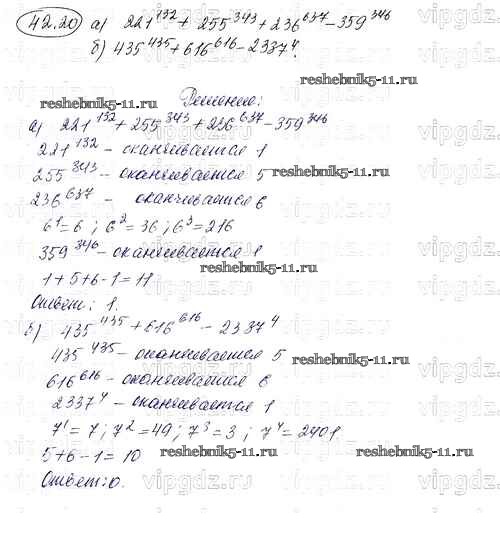 42.20) а) 221^132 + 255^343 + 236^637 - 359^346
б) 435^435 + 616^616 - 2337^4.
reshebnik5-11.ru
Решение:
а) 221^132 + 255^343 + 236^637 - 359^346
221^132 - оканчивается 1
255^343 - оканчивается 5
reshebnik5-11.ru
236^637 - оканчивается 6
6^1 = 6; 6^2 = 36; 6^3 = 216
359^346 - оканчивается 1
reshebnik5-11.ru
1+5+6-1 = 11
Ответ: 1.
б) 435^435 + 616^616 - 2337^4
435^435 - оканчивается 5
reshebnik5-11.ru
616^616 - оканчивается 6
2337^4 - оканчивается 1
7^1 = 7; 7^2 = 49; 7^3 = 3; 7^4 = 2401
5+6-1 = 10
reshebnik5-11.ru
Ответ: 0.
vipgdz.ru